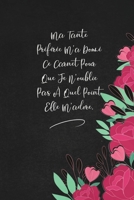 Ma Tante
Préférée M'a Donné
Ce Carnet Pour
Que Je N'oublie
Pas À Quel Point
Elle M'adore.